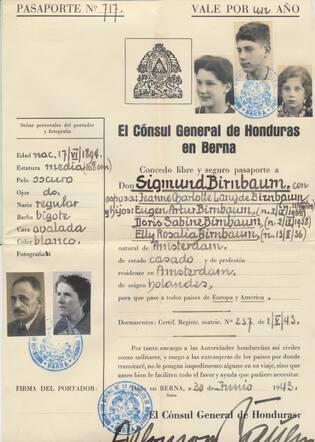 PASAPORTE Nº 717.
VALE POR un AÑO
El Cónsul General de Honduras
en Berna
Señas personales del portador
y fotografía
Edad nac. 17/VI/1894.
Estatura media
Pelo oscuro
Ojos do.
Nariz regular
Barba bigote
Cara ovalada
Color blanco.
Fotografía:
Concedo libre y seguro pasaporte a
Don Sigmund Birnbaum, con
esposa: Jeanne Charlotte Lang de Birnbaum
y hijos: Eugen Artur Birnbaum,
Doris Sabine Birnbaum
Elly Rosalia Birnbaum,
natural de Amsterdam.
de estado casado y de profesión
residente en Amsterdam.
de origen holandés,
para que pase a todos países de Europa y America.
Documentos: Certif. Registr. matric. Nº 237 1/V/43.
Por tanto encargo a las Autoridades hondureñas así civiles
como militares, y ruego a las extranjeras de los países por donde
transitaré, no le pongan impedimento alguno en su viaje, sino antes
bien le faciliten todo el favor y ayuda que pudiere necesitar.
FIRMA DEL PORTADOR:
Dado en BERNA, 20 de Junio 1943.
El Cónsul General de Honduras: